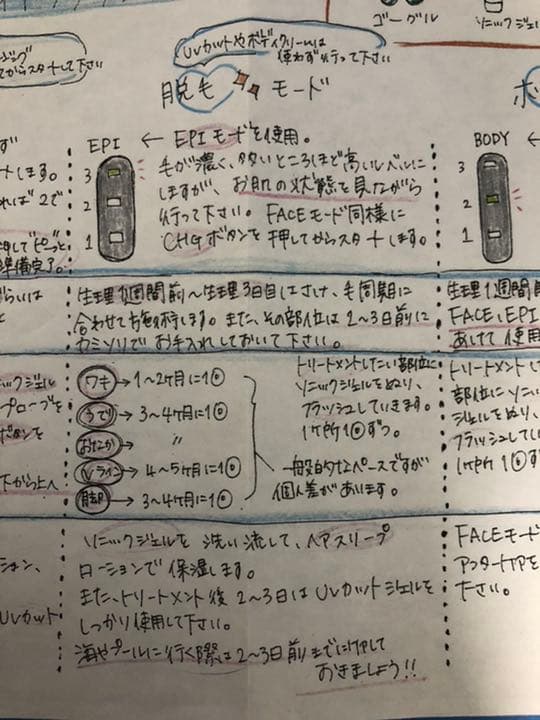 ゴーグル
ソニックジェル
てからスタートして下さい
UVカットやボディクリームは
使わず行って下さい
脱毛モード
EPI ← EPIモードを使用。
3
2
1
毛が濃く、多いところほど高いレベルに
しますが、お肌の状態を見ながら
行って下さい。FACEモード同様に
CHGボタンを押してからスタートします。
BODY ←
3
2
1
します。
れば2で
準備完了。
生理1週間前〜生理3日目はさけ、毛周期に
合わせてお施術します。また、その部位は2〜3日前に
カミソリでお手入れしておいて下さい。
生理1週間
FACE、EPI
あけて使用
ワキ→1〜2ヶ月に1回
うで→3〜4ヶ月に1回
おなか 〃
Vライン→4〜5ヶ月に1回
脚→3〜4ヶ月に1回
トリートメントしたい部位に
ソニックジェルをぬり、
フラッシュしていきます。
1ヶ所1回ずつ。
一般的なペースですが
個人差があります。
ニックジェル
プローブを
ボタンを
下から上へ
トリートメントし
部位にソニッ
ジェルをぬり、
フラッシュしてい
1ヶ所1回ず
ソニックジェルを洗い流して、ヘアスリープ
ローションで保湿します。
また、トリートメント後2〜3日はUVカットジェルを
しっかり使用して下さい。
海やプールに行く際は2〜3日前までに行して
おきましょう!!
ション、
UVカット
FACEモード
アフターケアを
下さい。